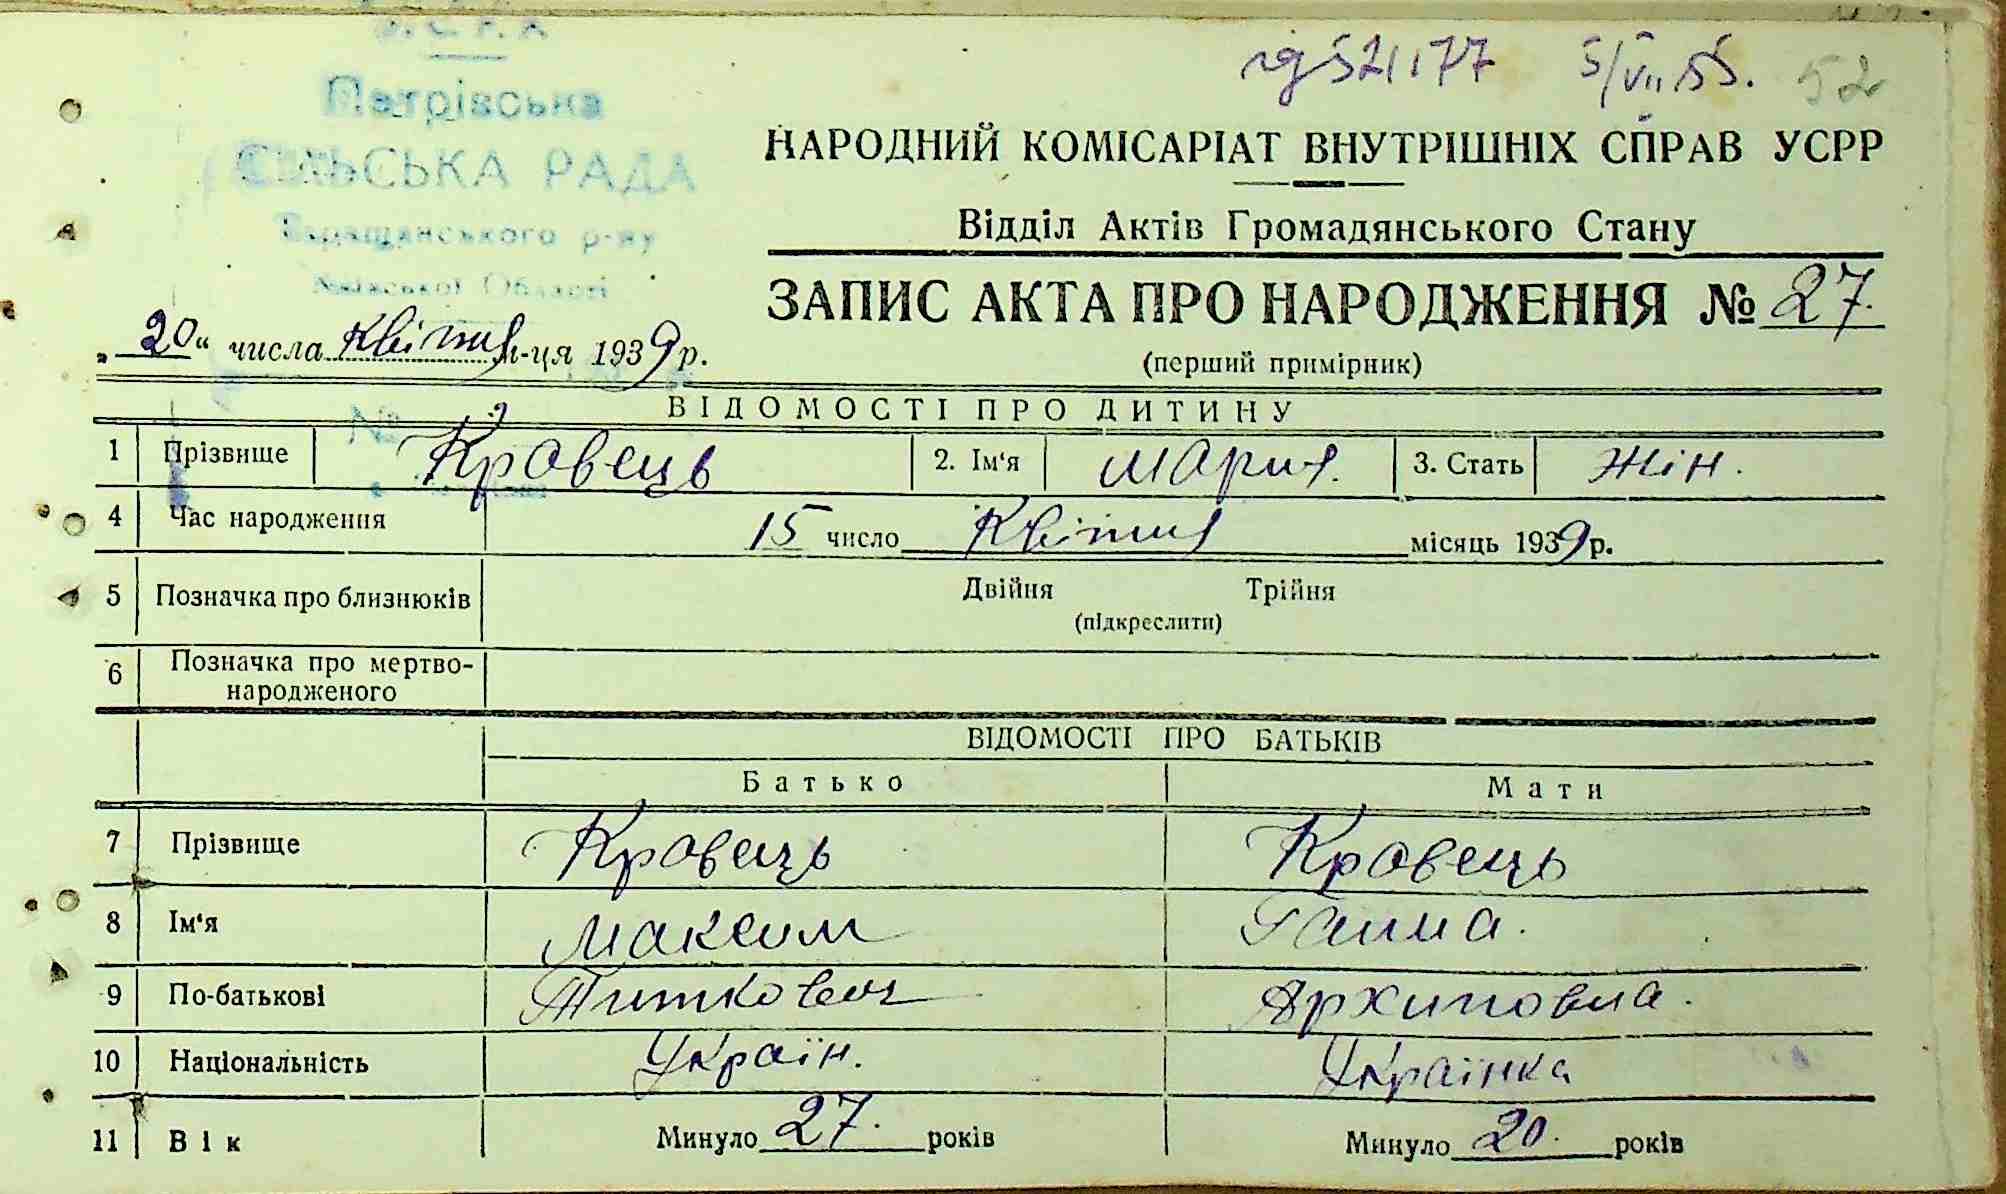 У. С. Р. Р.
5/VII 55. 52
Петрівська
СІЛЬСЬКА РАДА
Таращанського р-ну
Київської Області
НАРОДНИЙ КОМІСАРІАТ ВНУТРІШНІХ СПРАВ УСРР
Відділ Актів Громадянського Стану
ЗАПИС АКТА ПРО НАРОДЖЕННЯ № 27.
(перший примірник)
„20“ числа Квітня м-ця 1939 р.
№
ВІДОМОСТІ ПРО ДИТИНУ
1 Прізвище Кравець 2. Ім‘я Мария. 3. Стать жін.
4 Час народження 15 число Квітня місяць 1939 р.
5 Позначка про близнюків Двійня Трійня
(підкреслити)
6 Позначка про мертво-
народженого
ВІДОМОСТІ ПРО БАТЬКІВ
Батько Мати
7 Прізвище Кравець Кравець
8 Ім‘я Максим Ганна.
9 По-батькові Титкович Архиповна.
10 Національність Україн. Українка
11 Вік Минуло 27. років Минуло 20. років